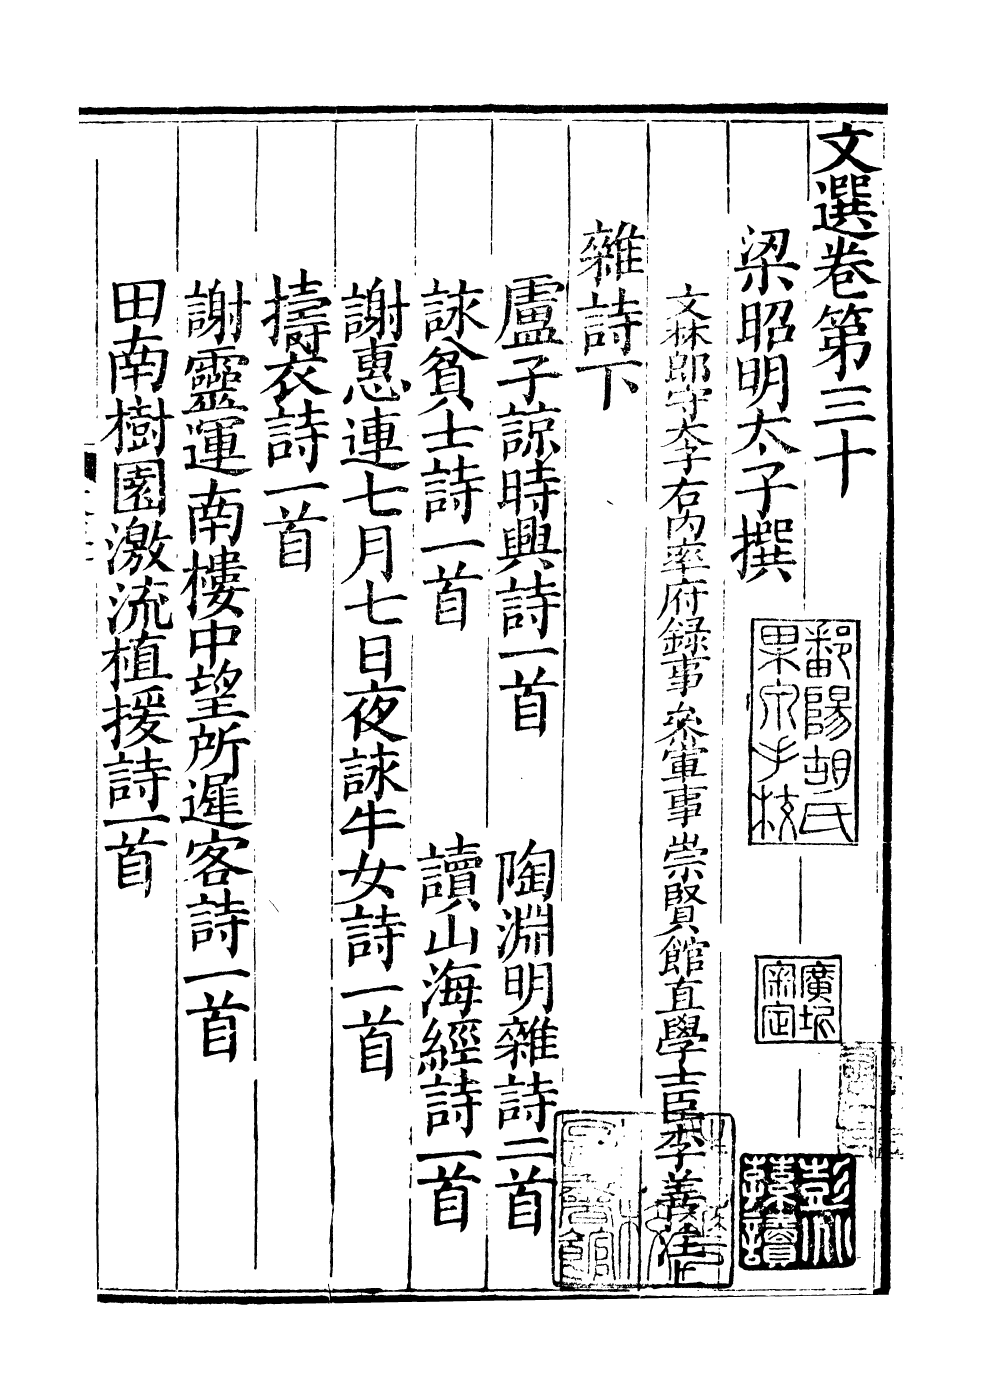 文選卷第三十
梁昭明太子撰
文林郎守太子右內率府録事叅軍事崇賢館直學士臣李善注上
雜詩下
盧子諒時興詩一首　陶淵明雜詩二首
詠貧士詩一首　讀山海經詩一首
謝惠連七月七日夜詠牛女詩一首
擣衣詩一首
謝靈運南樓中望所遲客詩一首
田南樹園激流植援詩一首
鄱陽胡氏
果泉手校